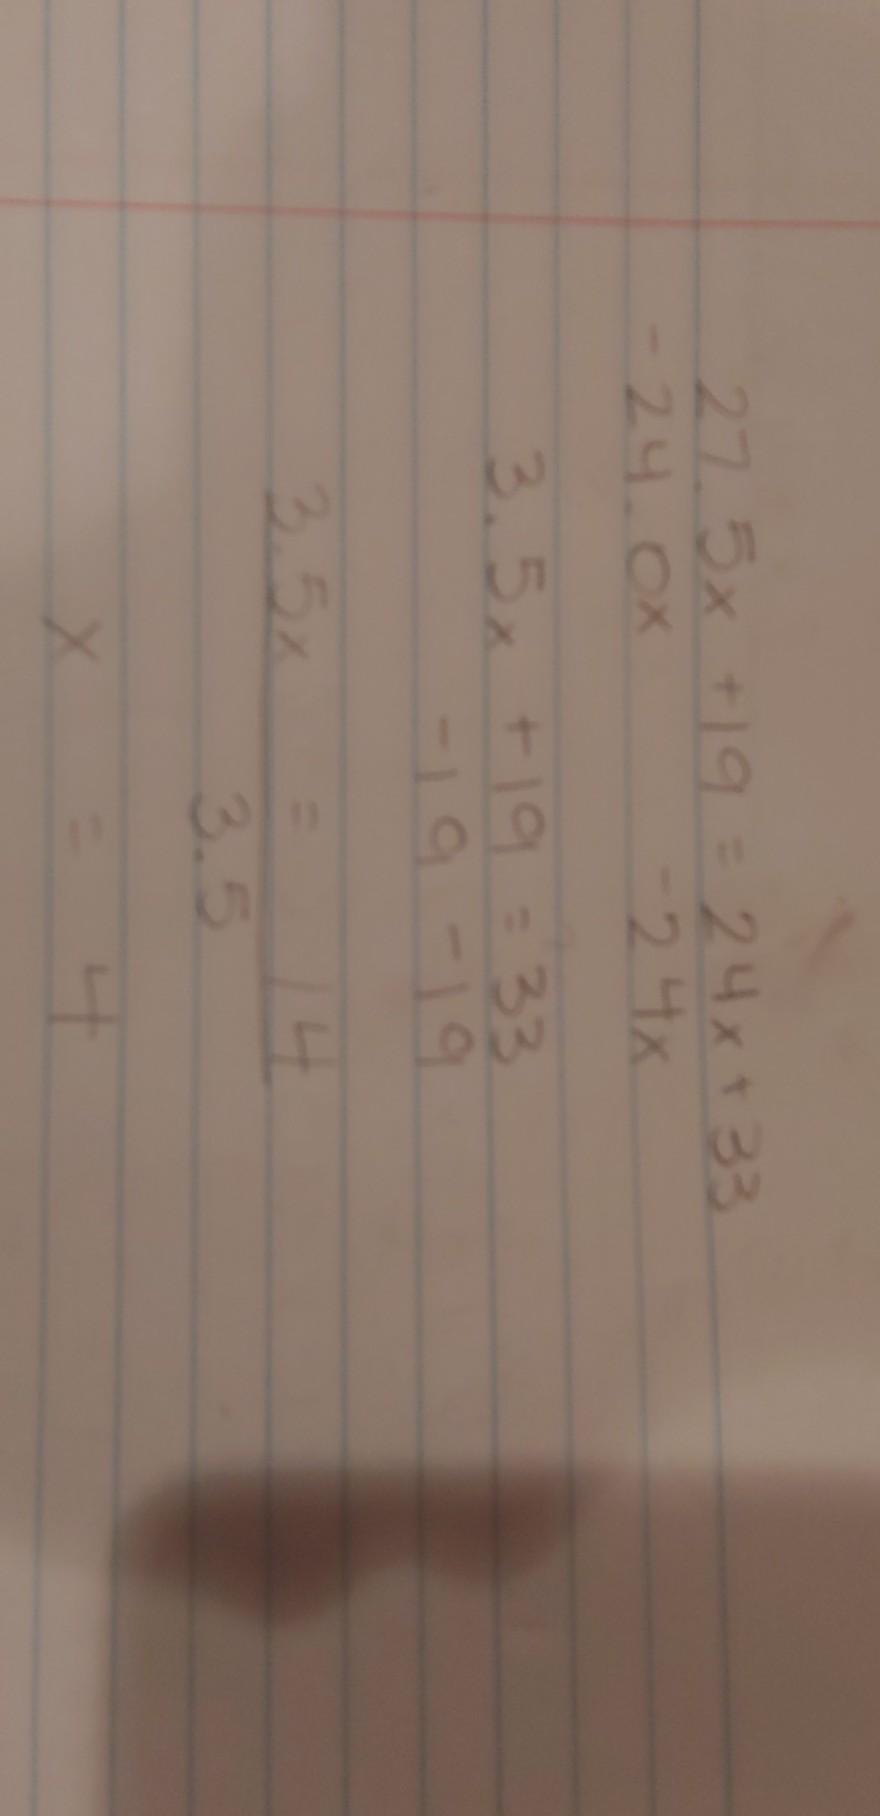 27.5x +19 = 24x + 33
-24.0x -24x
3.5x +19 = 33
-19 -19
3.5x = 14
3.5
x = 4